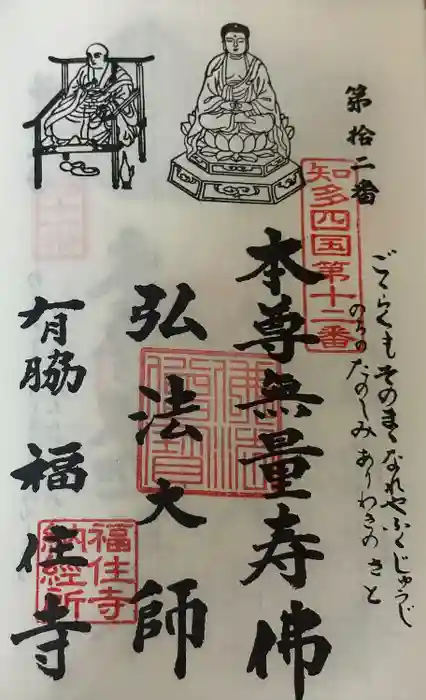 第拾二番
ごくらくも そのまゝなれや ふくじゅうじ
のちのたのしみ ありわきのさと
知多四国第十二番
本尊無量寿佛
弘法大師
有脇 福住寺
福住寺
納経所